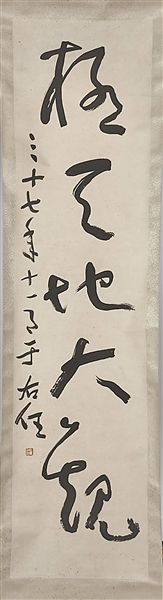 極天地大觀
三十七年十一月于右任